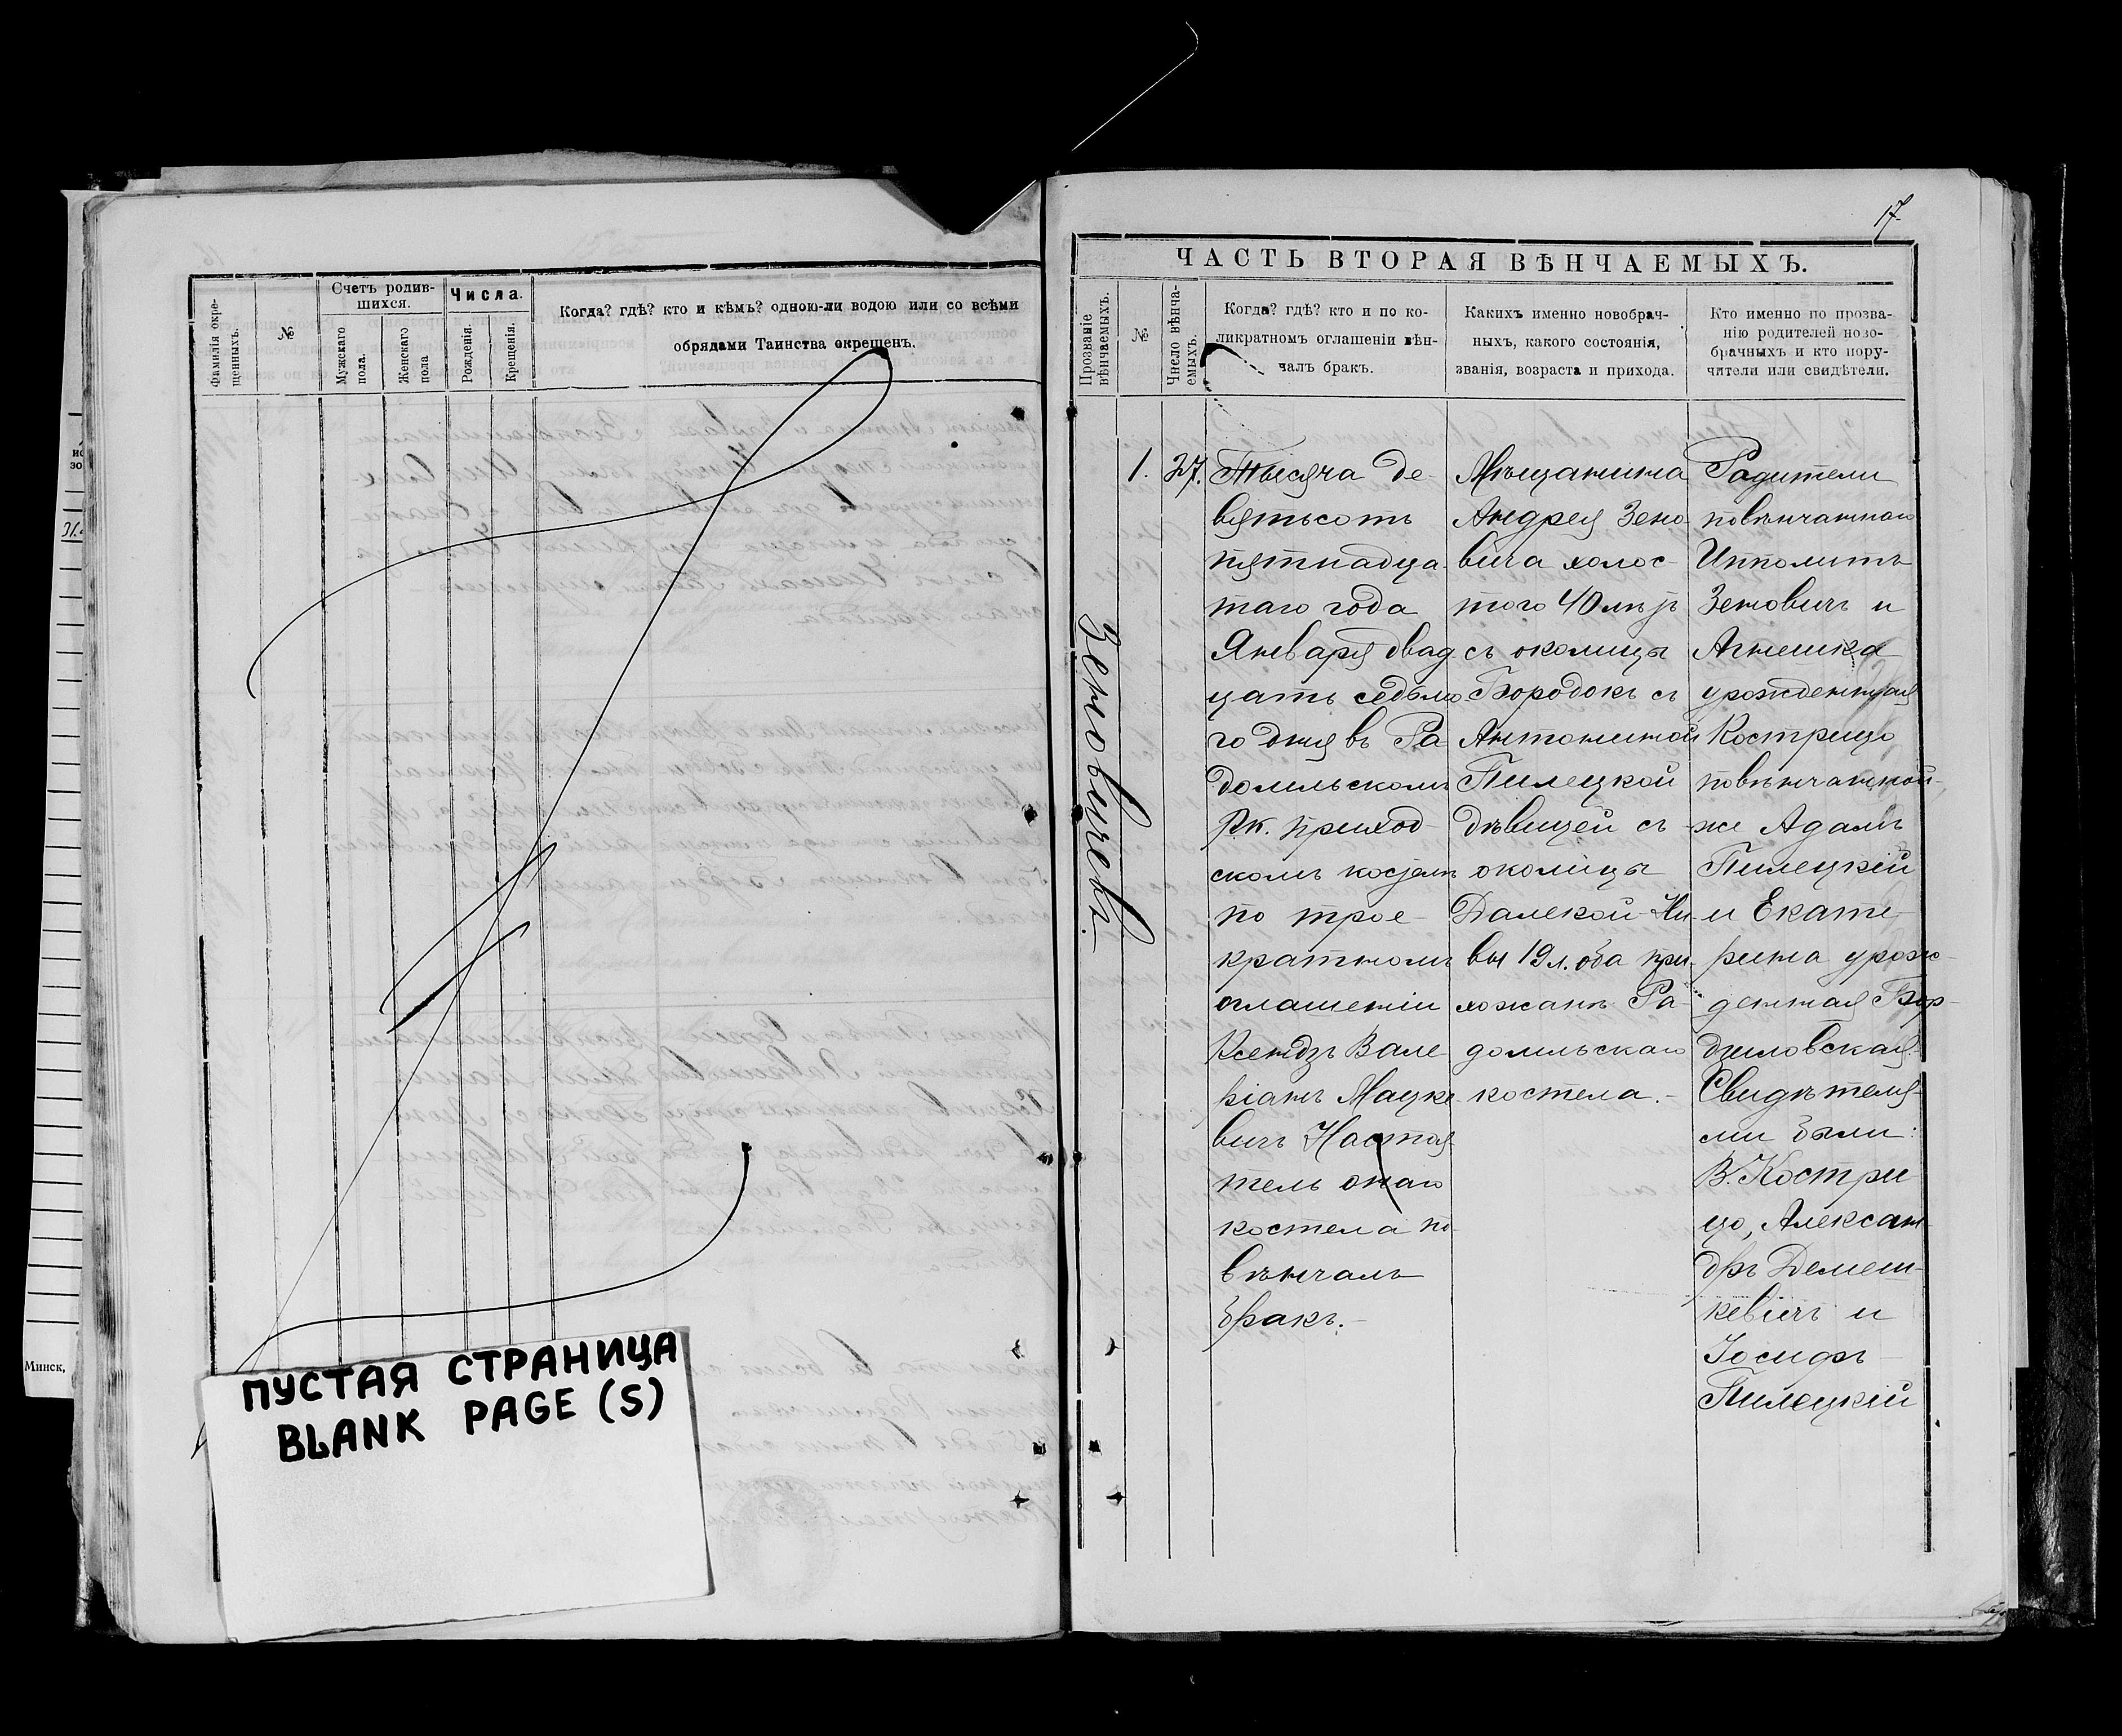 Фамилія окре-
щенныхъ.
№
Счетъ родив-
шихся.
Мужскаго
пола.
Женскаго
пола
Числа.
Рожденія.
Крещенія.
Когда? гдѣ? кто и кѣмъ? одною-ли водою или со всѣми
обрядами Таинства окрещенъ.
Минск,
ПУСТАЯ СТРАНИЦА
BLANK PAGE (S)
17.
ЧАСТЬ ВТОРАЯ ВѢНЧАЕМЫХЪ.
Прозваніе
вѣнчаемыхъ.
№
Число вѣнча-
емыхъ.
Когда? гдѣ? кто и по ко-
ликратномъ оглашеніи вѣн-
чалъ бракъ.
Какихъ именно новобрач-
ныхъ, какого состоянія,
званія, возраста и прихода.
Кто именно по прозва-
нію родителей ново-
брачныхъ и кто пору-
чители или свидѣтели.
Зеновичевъ.
1.
27.
Тысяча де-
вятьсотъ
пятнадца-
таго года
Января двад-
цать седьмо-
го дня въ Ра-
домльскомъ
Рк. приход-
скомъ костелѣ
по трое-
кратномъ
оглашеніи
Ксендзъ Вале-
ріанъ Мацке-
вичъ Настоя-
тель онаго
костела по-
вѣнчалъ
бракъ.-
Мѣщанина
Андрея Зено-
вича холос-
того 40 лѣтъ
съ околицы
Бородокъ съ
Антониной
Пилецкой
дѣвицей съ
околицы
Далекой Ни-
вы 19 л. оба при-
хожанъ Ра-
домльскаго
костела.-
Родители
повѣнчаннаго
Ипполитъ
Зеновичъ и
Агнешка
урожденная
Кострицо
повѣнчанной-
же Адамъ
Пилецкій
и Екате-
рина урож-
денная Бор-
дзиловская.
Свидѣтеля-
ми были:
В. Костри
цо, Алексан-
дръ Демеш-
кевичъ и
Іосифъ
Пилецкій